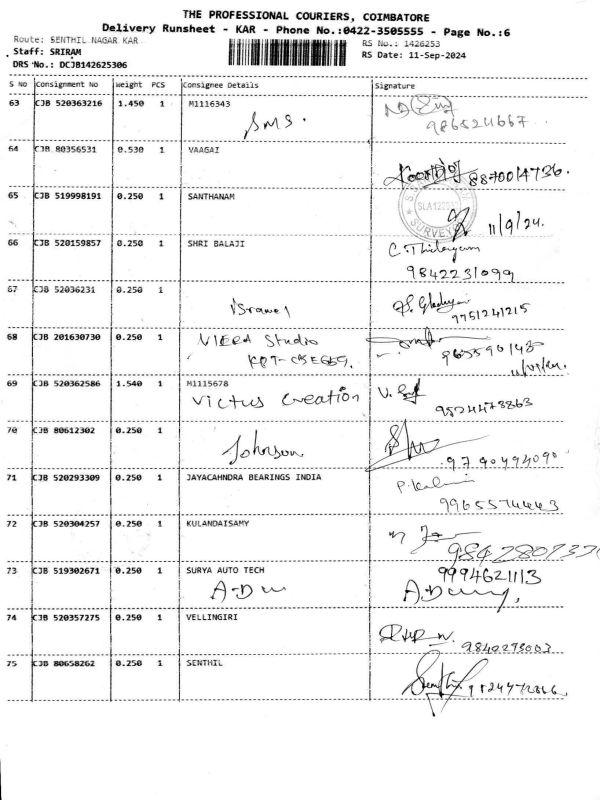 THE PROFESSIONAL COURIERS, COIMBATORE
Delivery Runsheet - KAR - Phone No.:0422-3505555 - Page No.:6
Route: SENTHIL NAGAR KAR
RS No.: 1426253
Staff: SRIRAM
RS Date: 11-Sep-2024
DRS No.: DCJB142625306
S No Consignment No Weight PCS Consignee Details Signature
63 CJB 520363216 1.450 1 M1116343
SMS.
986524667
64 CJB 80356531 0.530 1 VAAGAI
8870014736.
65 CJB 519998191 0.250 1 SANTHANAM
11/9/24.
66 CJB 520159857 0.250 1 SHRI BALAJI
9842231099
67 CJB 52036231 0.250 1
9751241215
68 CJB 201630730 0.250 1 VIERA Studio
69 CJB 520362586 1.540 1 M1115678
Victus Creation
9524473863
70 CJB 80612302 0.250 1
Johnson
9790494090
71 CJB 520293309 0.250 1 JAYACAHNDRA BEARINGS INDIA
9965574443
72 CJB 520304257 0.250 1 KULANDAISAMY
73 CJB 519302671 0.250 1 SURYA AUTO TECH
9994621113
74 CJB 520357275 0.250 1 VELLINGIRI
9840273003
75 CJB 80658262 0.250 1 SENTHIL